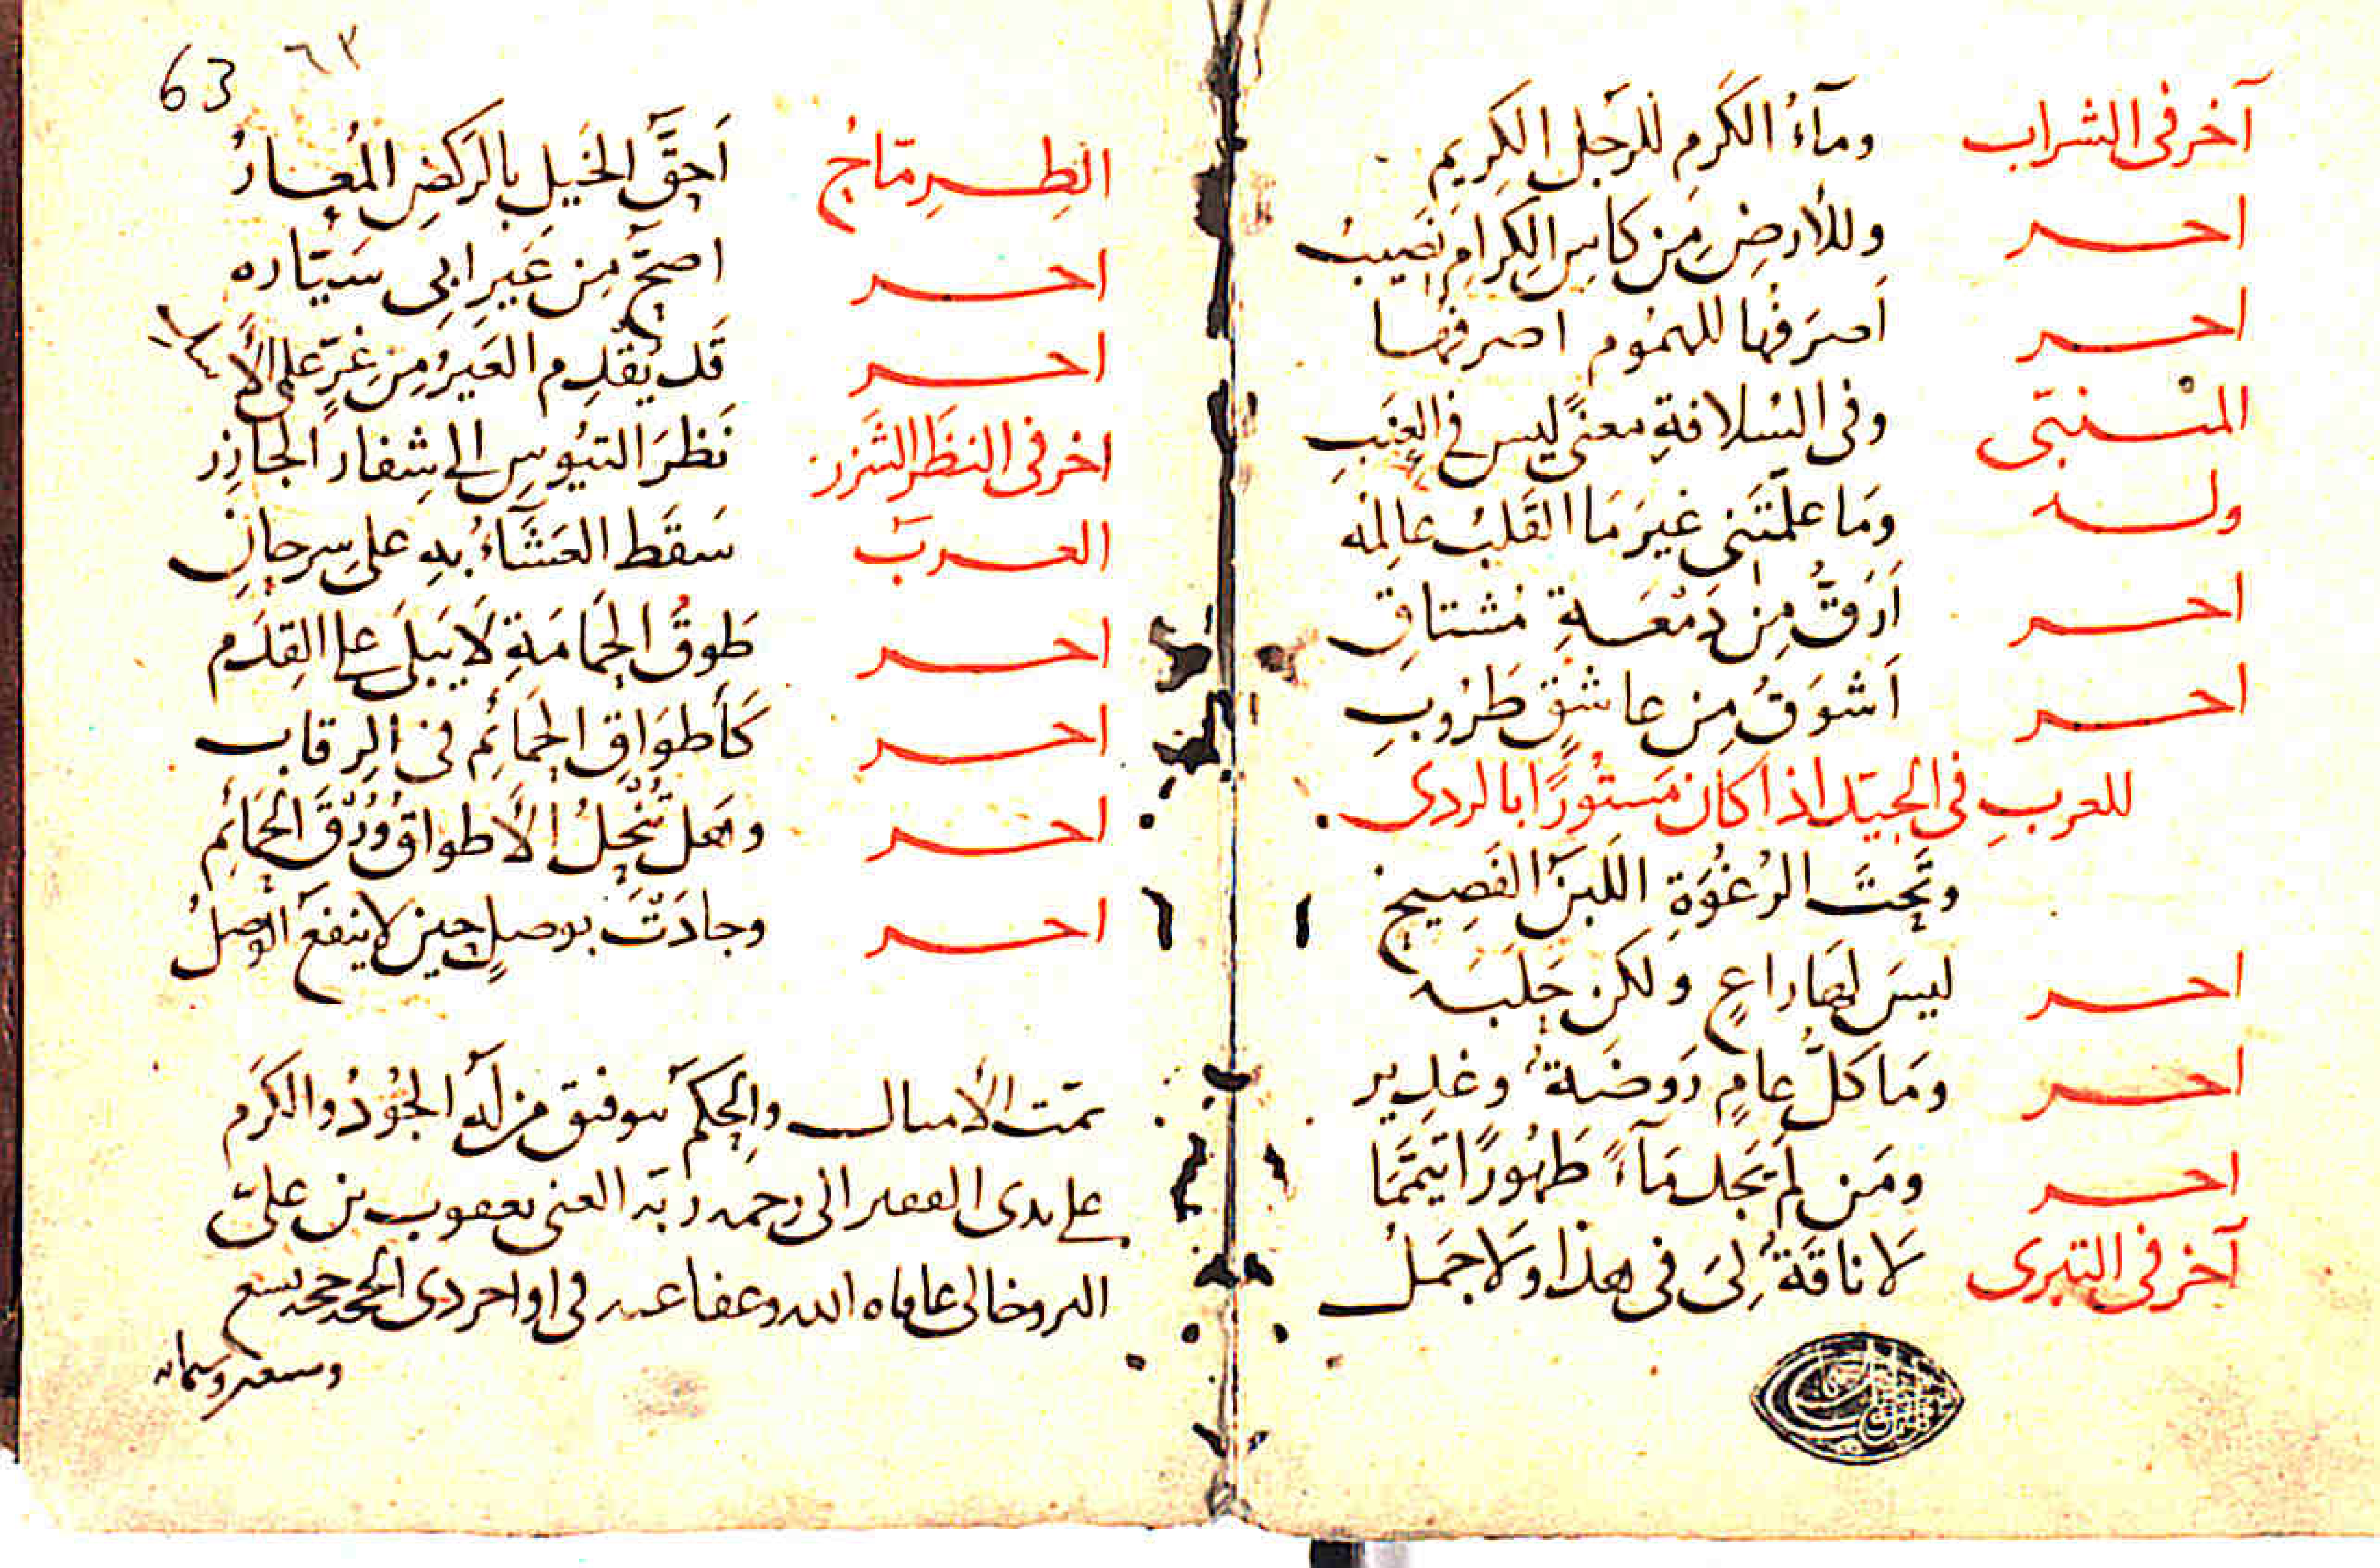 آخر فى الشراب ومآءُ الكَرمِ للرّجل الكريم
اخر وللأرضِ مِن كاسِ الكِرامِ نَصِيبُ
اخر اَصرَفُها للهمُوم اصرفها
المتنبّى وفى السُلافةِ معنًى ليس فى العِنَبِ
وله وَمَا علّمَتَنى غيرَ مَا القَلبُ عالِمُه
اخر اَرَقُّ مِن دَمْعَةِ مُشتاقِ
اخر اَشوَقُ مِن عاشقٍ طَرُوبِ
للعربِ فى الجيّد اذا كان مَستُورًا بالردى
وتَحتَ الرُغْوَةِ اللَبَنُ الفَصِيحُ
اخر ليسَ لهَا راعٍ ولكن حَلَبَه
اخر وَمَا كلُّ عامٍ رَوضَةٌ وغدِير
اخر ومَن لم يَجد مَآءً طَهُورًا تيَمَّمَا
آخر فى التبرى لَا ناقَةٌ لِىَ فى هذا ولَا جَمَلُ
63 ٦٣
الطِرِمّاحُ اَحَقُّ الخَيلِ بالرَكضِ المُعارُ
اخر اصحّ مِن عَيرِ ابِى سَيّاره
اخر قَد يُقدِم العَيرُ مِن ذعرٍ على الأسد
اخر فى النظَرِ الشَزر نَظرَ التيُوسِ الى شِفار الجازِر
العرب سَقَط العَشَآءُ بهِ على سِرحانِ
اخر طَوقُ الحَمامَةِ لَا يَبلَى على القِدَم
اخر كَأطوَاقِ الحَمَائِم فى الرقاب
اخر وهل تُنحِلُ الأطواقُ وُرْقَ الحَمَائِم
اخر وجادَتْ بوصلٍ حين لا ينفعُ الوصلُ
تمّت الأمثال والحِكَم بتوفيق من له الجُودُ والكَرَم
على يدى الفقير الى رحمة ربّه الغنى يعقوب بن علىّ
عافاه الله وعفا عنه فى اواخر ذى الحجّة حجة تسع